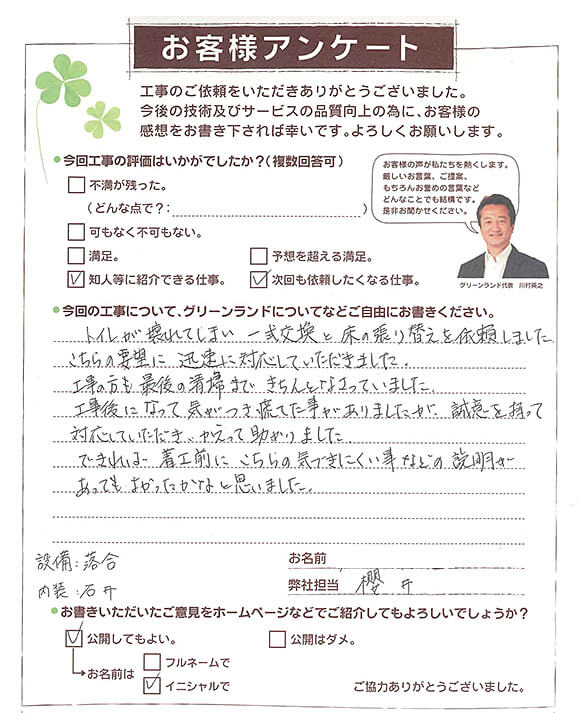 お客様アンケート
工事のご依頼をいただきありがとうございました。
今後の技術及びサービスの品質向上の為に、お客様の
感想をお書き下されば幸いです。よろしくお願いします。
今回工事の評価はいかがでしたか?(複数回答可)
不満が残った。
(どんな点で?: )
可もなく不可もない。
満足。
予想を超える満足。
知人等に紹介できる仕事。
次回も依頼したくなる仕事。
お客様の声が私たちを熱くします。
厳しいお言葉、ご提案、
もちろんお誉めの言葉など
どんなことでも結構です。
是非お聞かせください。
グリーンランド代表 川村英之
今回の工事について、グリーンランドについてなどご自由にお書きください。
トイレが壊れてしまい 一式交換と床の張り替えを依頼しました
こちらの要望に 迅速に対応していただきました.
工事の方も最後の清掃まできちんとなさっていました.
工事後になって気がつき慌てた事がありましたが 誠意を持って
対応していただき、かえって助かりました
できれば 着工前に こちらの気づきにくい事などの説明が
あってもよかったかなと思いました.
設備:落合
内装:石井
お名前
弊社担当 櫻井
お書きいただいたご意見をホームページなどでご紹介してもよろしいでしょうか?
公開してもよい。
公開はダメ。
お名前は
フルネームで
イニシャルで
ご協力ありがとうございました。